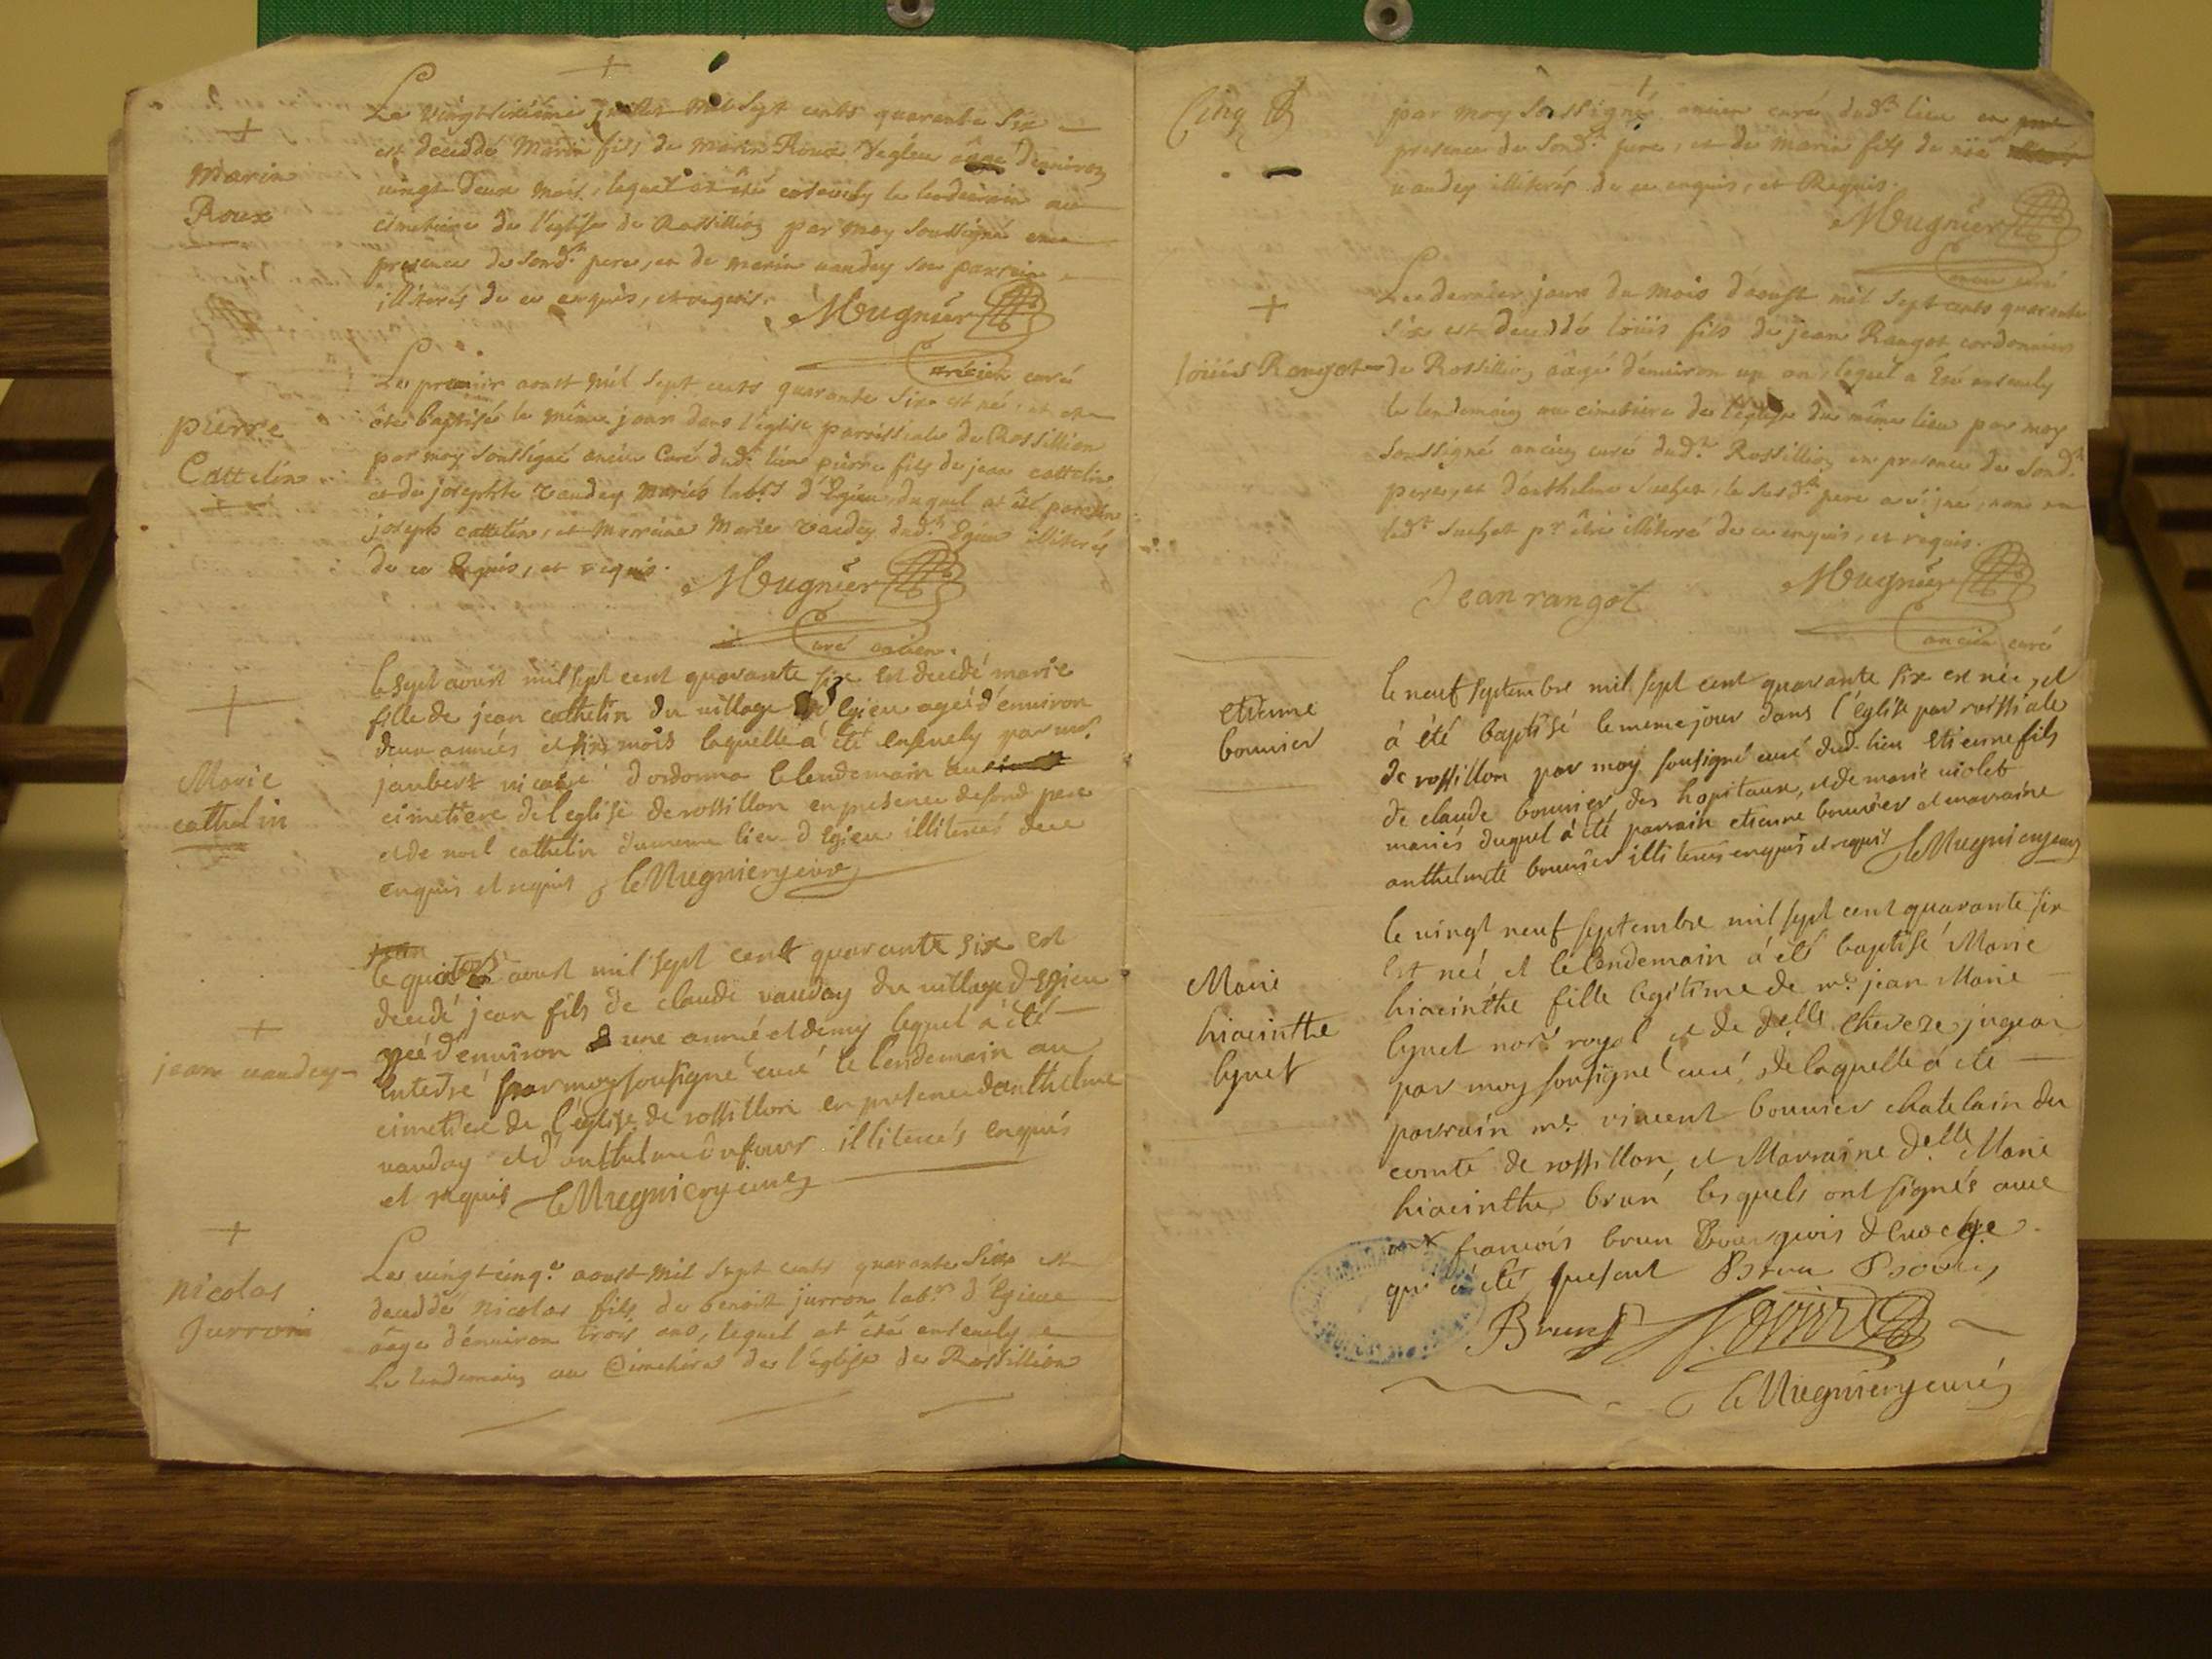 Marin
Roux
Le vingt sixième juillet mil sept cents quarante six
est deceddé Marin fils de Marin Roux d'egieu âgé d'environ
vingt deux mois, lequel at été ensevely le lendemain au
cimetiere de l'église de Rossillion par moy soussigné en
presence de sond.t pere, et de marin vaudey son parrain
illiterés de ce enquis, et requis.
Mugnier
ancien curé
pierre
Cattelin
Le premier aoust mil sept cents quarante six est né, et at
été baptisé le même jour dans l'église parroissiale de Rossillion
par moy soussigné ancien Curé dud.t lieu pierre fils de jean cattelin
et de josephte vaudey mariés lab.rs d'Egieu, duquel at été parrain
joseph cattelin, et marraine Marie vaudey dud.t Egieu illiterés
de ce Enquis, et requis.
Mugnier
curé ancien.
Marie
cathelin
le sept aoust mil sept cent quarante six est decedé marie
fille de jean cathelin du village d'Egieu ageé d'environ
deux anneés et six mois laquelle a été ensevely par mr.
jaubert vicaire d'ordonna le lendemain au
cimetiere de l'eglise de rossillon en présence de sond pere
et de noel cathelin du meme lieu d Egieu illiterés de ce
enquis et requis le Mugnier curé
jean vaudey
le quatorze aoust mil sept cent quarante six est
decedé jean fils de claude vauday du village d Egieu
ageé d'environ une anneé et demy lequel a été
enterré par moy sousigné curé le lendemain au
cimetiere de l'eglise de rossillon en presence d'anthelme
vauday et d'anthelme dufour illiterés enquis
et requis le Mugnier curé
nicolas
Jurron
Le vingt cinq.e aoust mil sept cents quarante six est
deceddé nicolas fils de benoit jurron lab.r d'Egieu
âgé d'environ trois ans, lequel at été ensevely
Le lendemain au Cimetiere de l'église de Rossillion
Cinq
par moy soussigné, ancien curé dud.t lieu en
presence de sond.t pere, et de marin fils de
vaudey illiterés de ce enquis, et Requis.
Mugnier
ancien curé
loüis Rangot
Le dernier jour du mois d'aoust mil sept cents quarante
six est deceddé loüis fils de jean Rangot cordonnier
de Rossillion âagé d'environ un an, lequel a été ensevely
le lendemain au cimetiere de l'église du même lieu par moy
soussigné ancien curé dud.t Rossillion en presence de sond.t
pere, et d'anthelme suchet, le susd.t pere a signé, non
led.t suchet p.r être illiteré de ce enquis, et requis.
Jean rangot
Mugnier
ancien curé
etienne
bouvier
le neuf septembre mil sept cent quarante six est né, et
à été baptisé le meme jour dans l'église parroissiale
de rossillon par moy sousigné curé dud. lieu etienne fils
de claude bouvier des hopitaux, et de marie violet
mariés duquel à été parrain etienne bouvier et marraine
anthelmete bouvier illiterés enquis et requis le Mugnier curé
Marie
hiacinthe
lynet
le vingt neuf septembre mil sept cent quarante six
est neé et le lendemain à été baptisé Marie
hiacinthe fille legitime de mr. jean Marie
lynet nore royal et de delle
par moy sousigné curé, de laquelle à été
parrain mr. vincent bouvier chatelain du
comté de rossillon, et Marraine d.elle Marie
hiacinthe brun lesquels ont signés avec
françois brun bourgeois
qui à été present Brun
Brun
le Mugnier curé